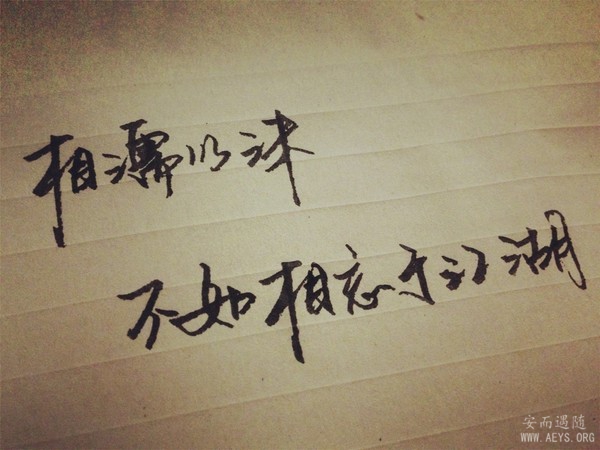 相濡以沫
不如相忘于江湖
安而遇随
WWW.AEYS.ORG